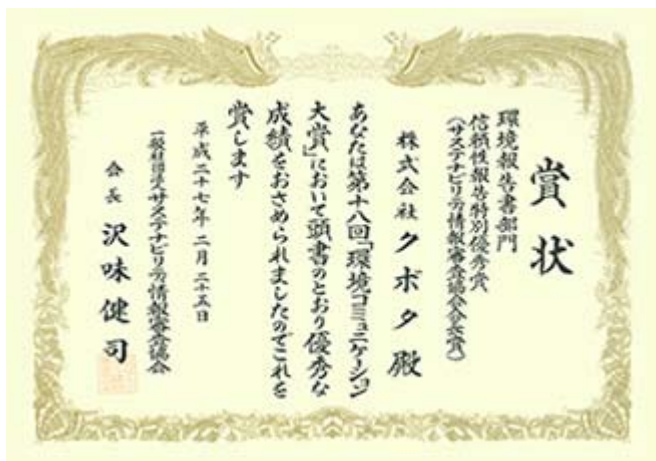 賞状
環境報告書部門
信頼性報告特別優秀賞
(サステナビリティ情報審査協会会長賞)
株式会社クボタ殿
あなたは第十八回「環境コミュニケーション
大賞」において頭書のとおり優秀な
成績をおさめられましたのでこれを
賞します
平成二十七年二月二十五日
一般社団法人サステナビリティ情報審査協会
会長 沢味健司